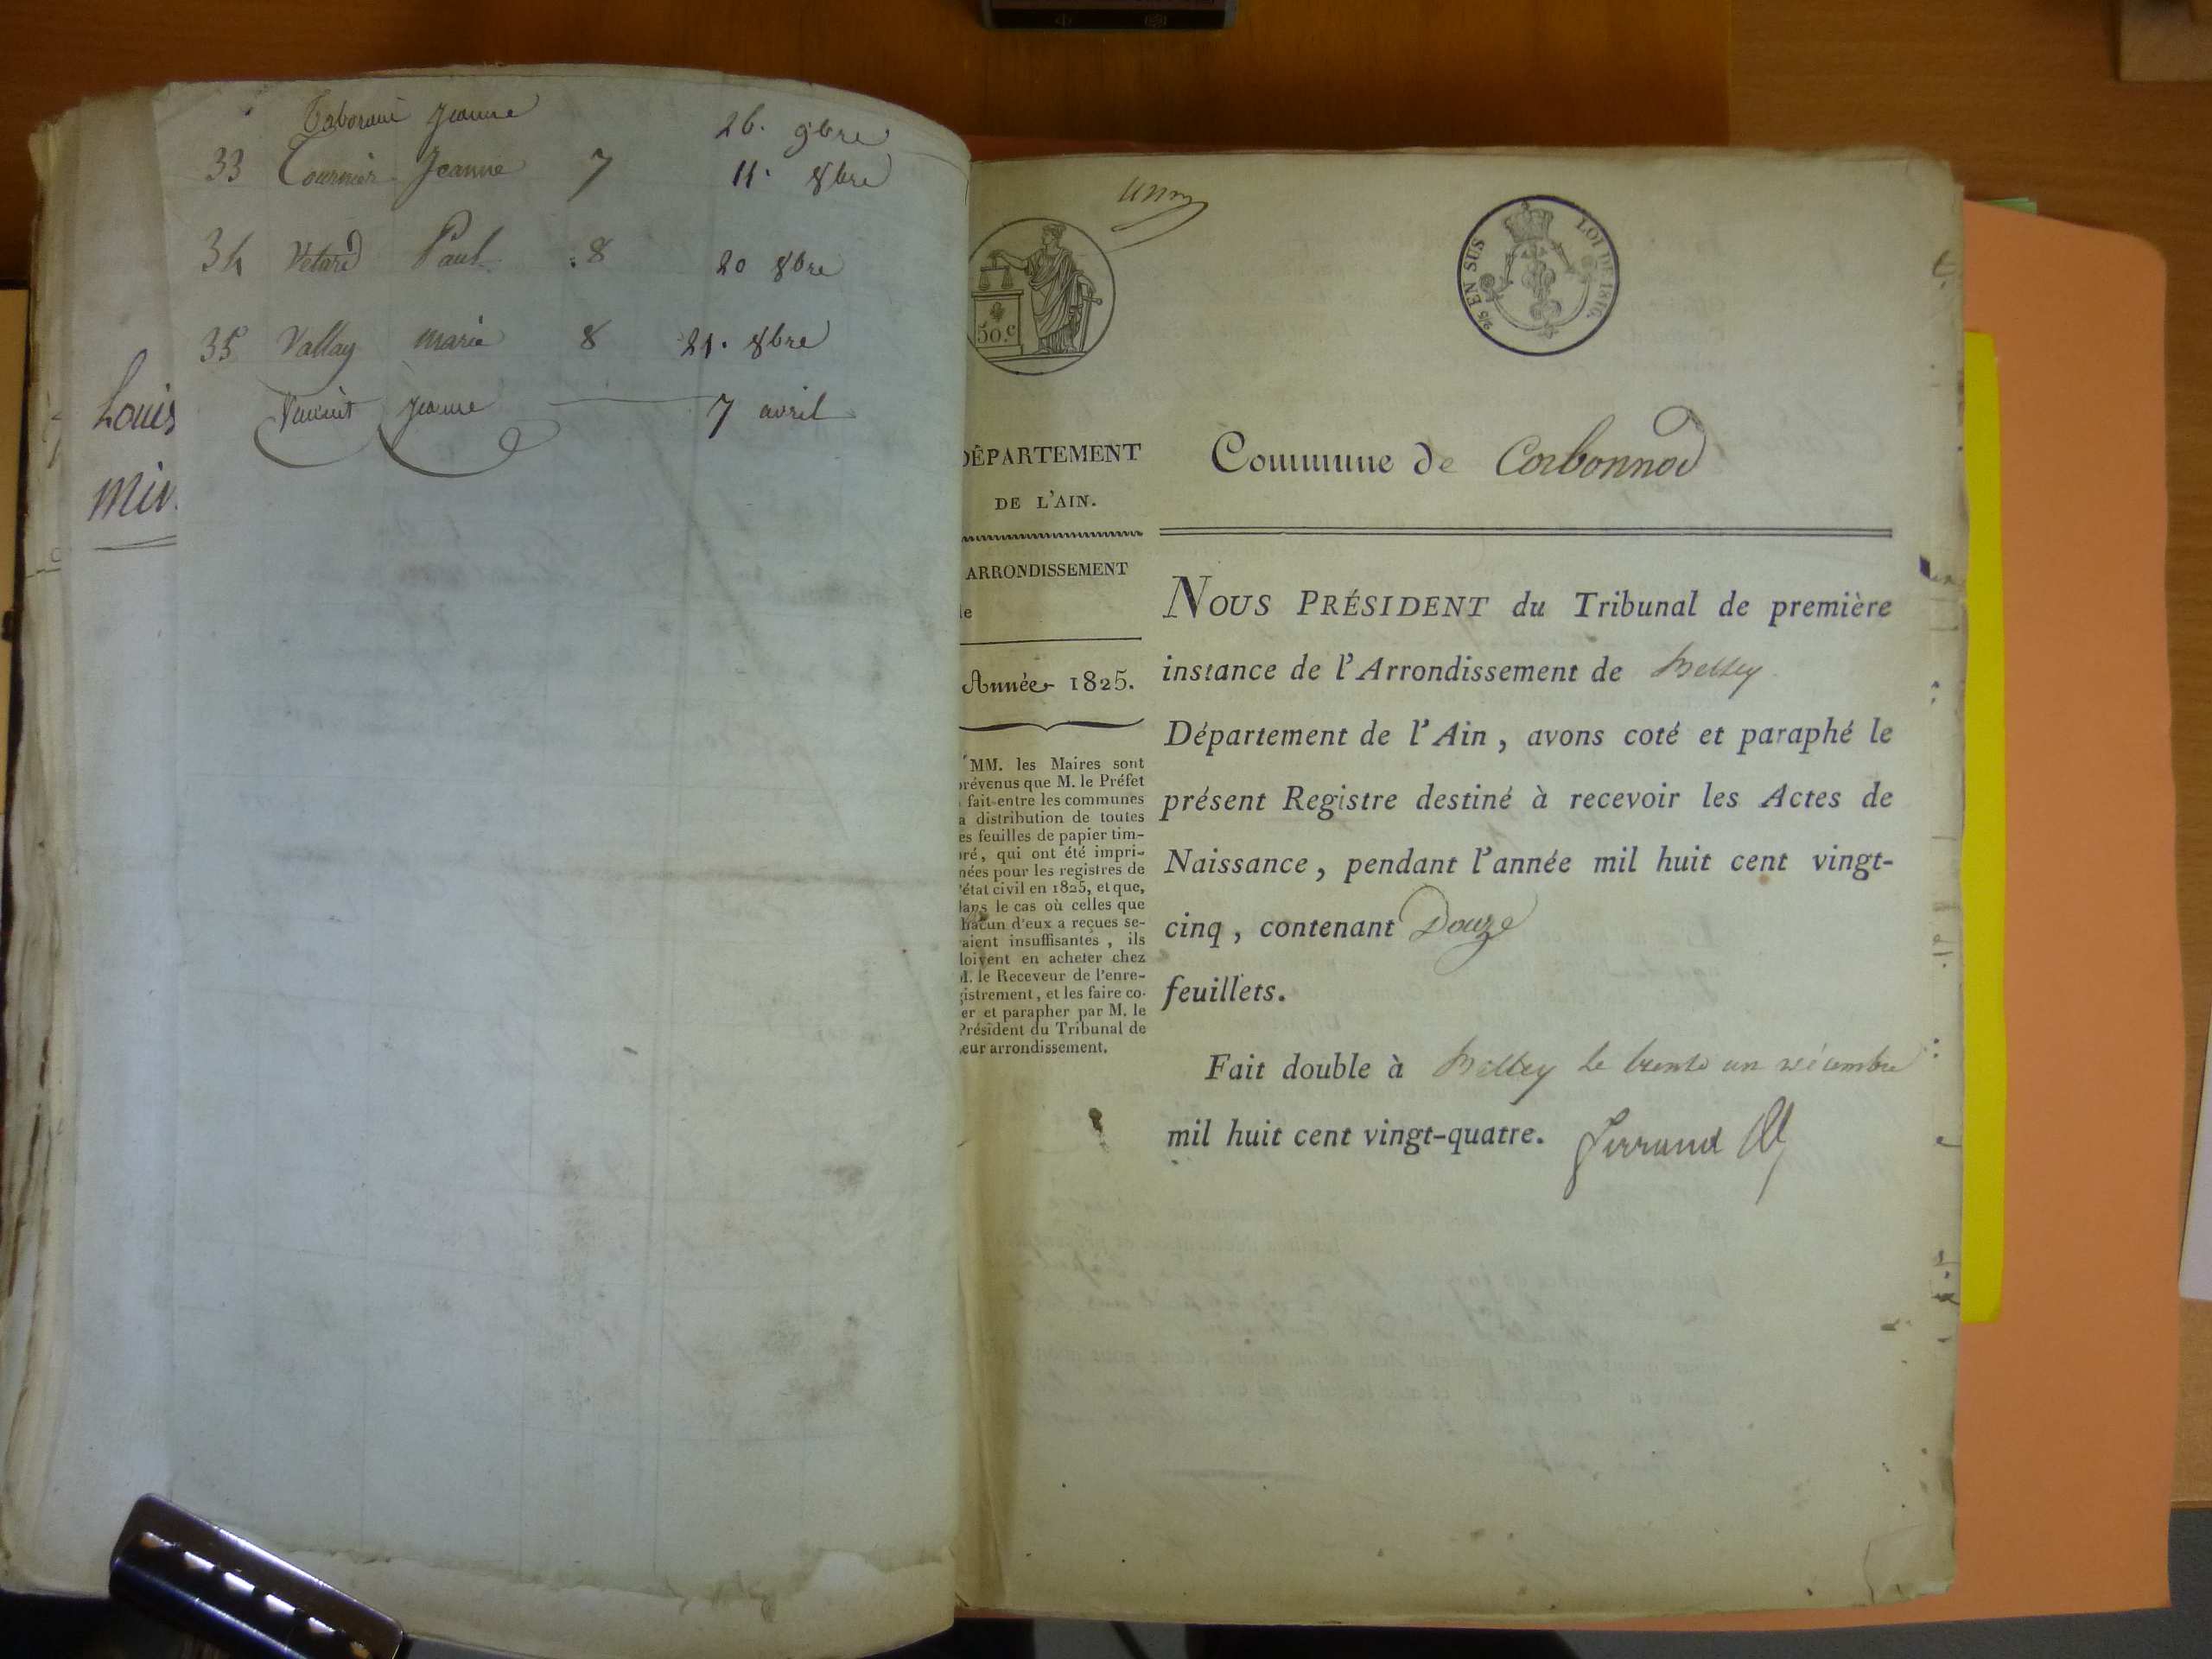 Taboraui Jeanne 26. 9bre
33 Tournier Jeanne 7 11. 8bre
34 Vetard Paul 8 20 8bre
35 Vallay marie 8 21. 8bre
Jeanne 7 avril
Louis
Min.
50.c
2/5 EN SUS
LOI DE 1816.
DÉPARTEMENT
DE L'AIN.
ARRONDISSEMENT
Année 1825.
MM. les Maires sont
prévenus que M. le Préfet
fait entre les communes
a distribution de toutes
es feuilles de papier tim-
ré, qui ont été impri-
nées pour les registres de
'état civil en 1825, et que,
ans le cas où celles que
hacun d'eux a reçues se-
aient insuffisantes, ils
doivent en acheter chez
M. le Receveur de l'enre-
gistrement, et les faire co-
er et parapher par M. le
Président du Tribunal de
eur arrondissement.
Commune de Corbonnod
NOUS PRÉSIDENT du Tribunal de première
instance de l'Arrondissement de Belley
Département de l'Ain, avons coté et paraphé le
présent Registre destiné à recevoir les Actes de
Naissance, pendant l'année mil huit cent vingt-
cinq, contenant Douze
feuillets.
Fait double à Belley le trente un décembre
mil huit cent vingt-quatre. Ferrand